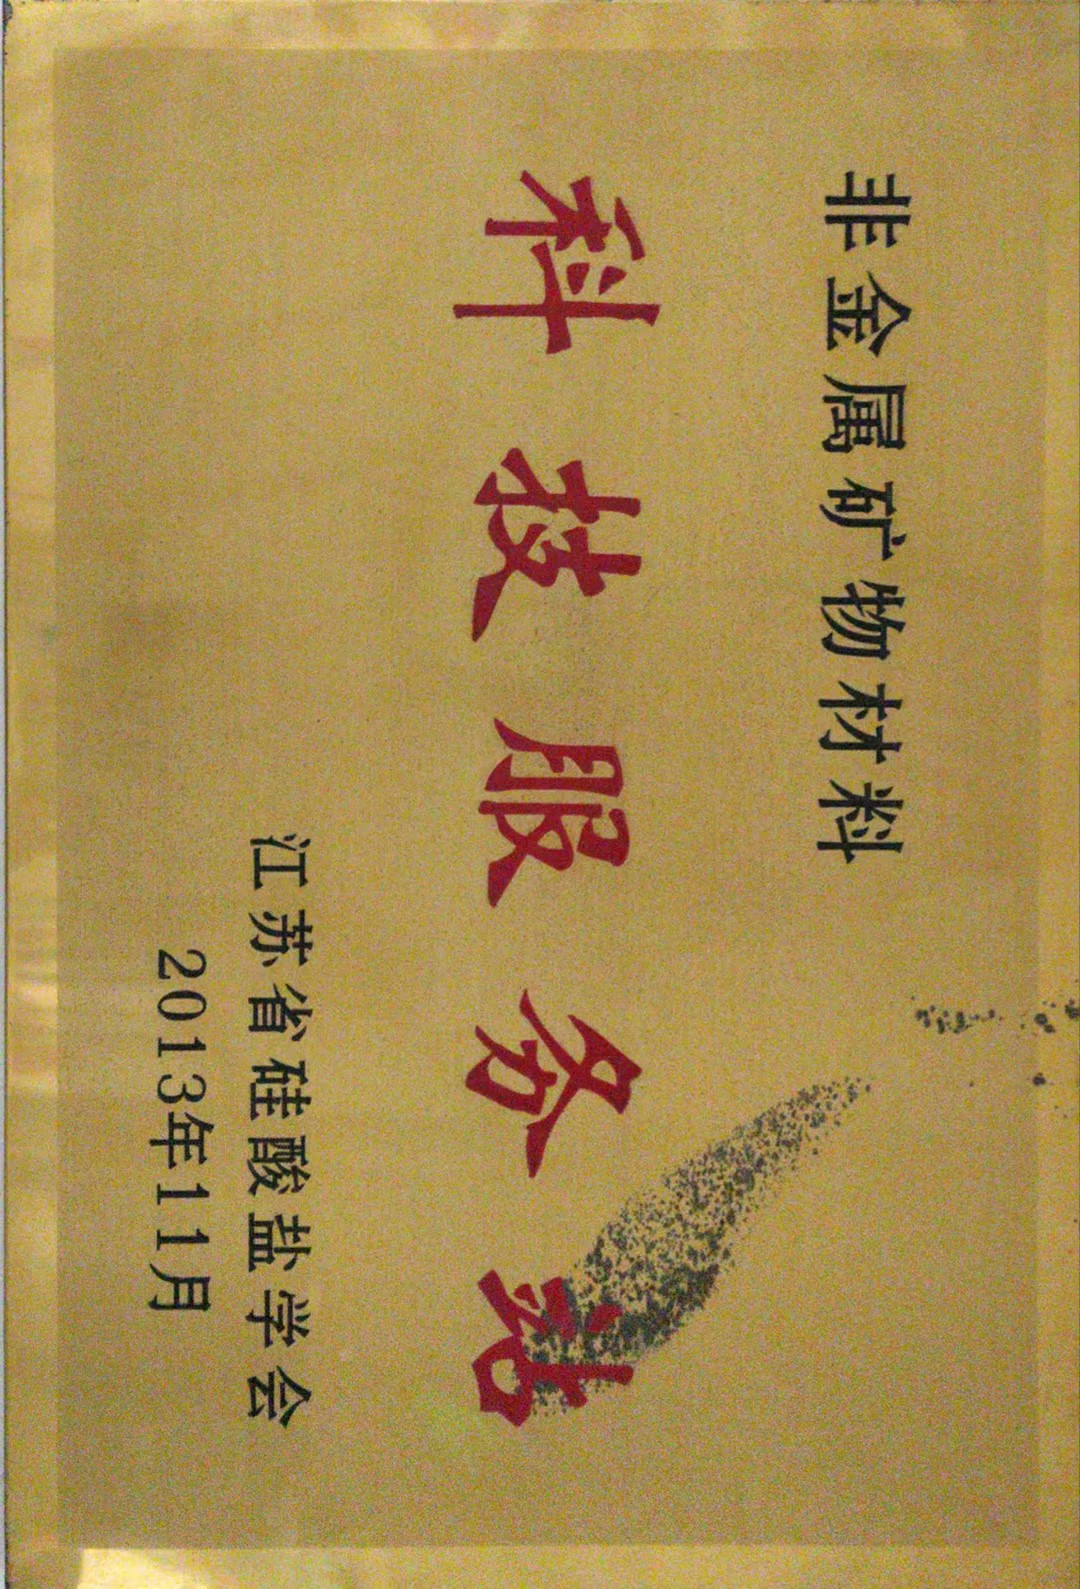 非金属矿物材料
科技服务站
江苏省硅酸盐学会
2013年11月